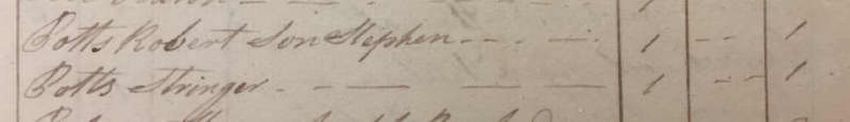 Potts Robert Son Stephen - - - - 1 - - 1
Potts Stringer - - - - - 1 - - 1